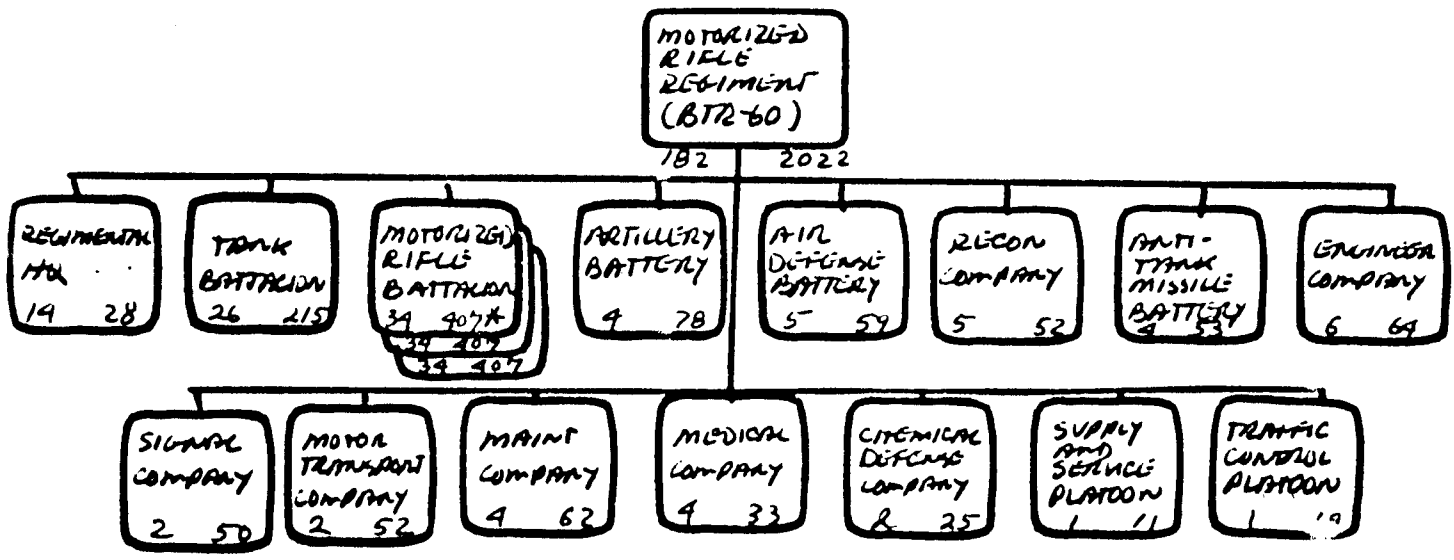 MOTORIZED
RIFLE
REGIMENT
(BTR-60)
182 2022
REGIMENTAL
HQ
14 28
TANK
BATTALION
26 215
MOTORIZED
RIFLE
BATTALION
34 407*
34 407
34 407
ARTILLERY
BATTERY
4 78
AIR
DEFENSE
BATTERY
5 59
RECON
COMPANY
5 52
ANTI-
TANK
MISSILE
BATTERY
4 53
ENGINEER
COMPANY
6 64
SIGNAL
COMPANY
2 50
MOTOR
TRANSPORT
COMPANY
2 52
MAINT
COMPANY
4 62
MEDICAL
COMPANY
4 33
CHEMICAL
DEFENSE
COMPANY
2 25
SUPPLY
AND
SERVICE
PLATOON
1 11
TRAFFIC
CONTROL
PLATOON
1 19